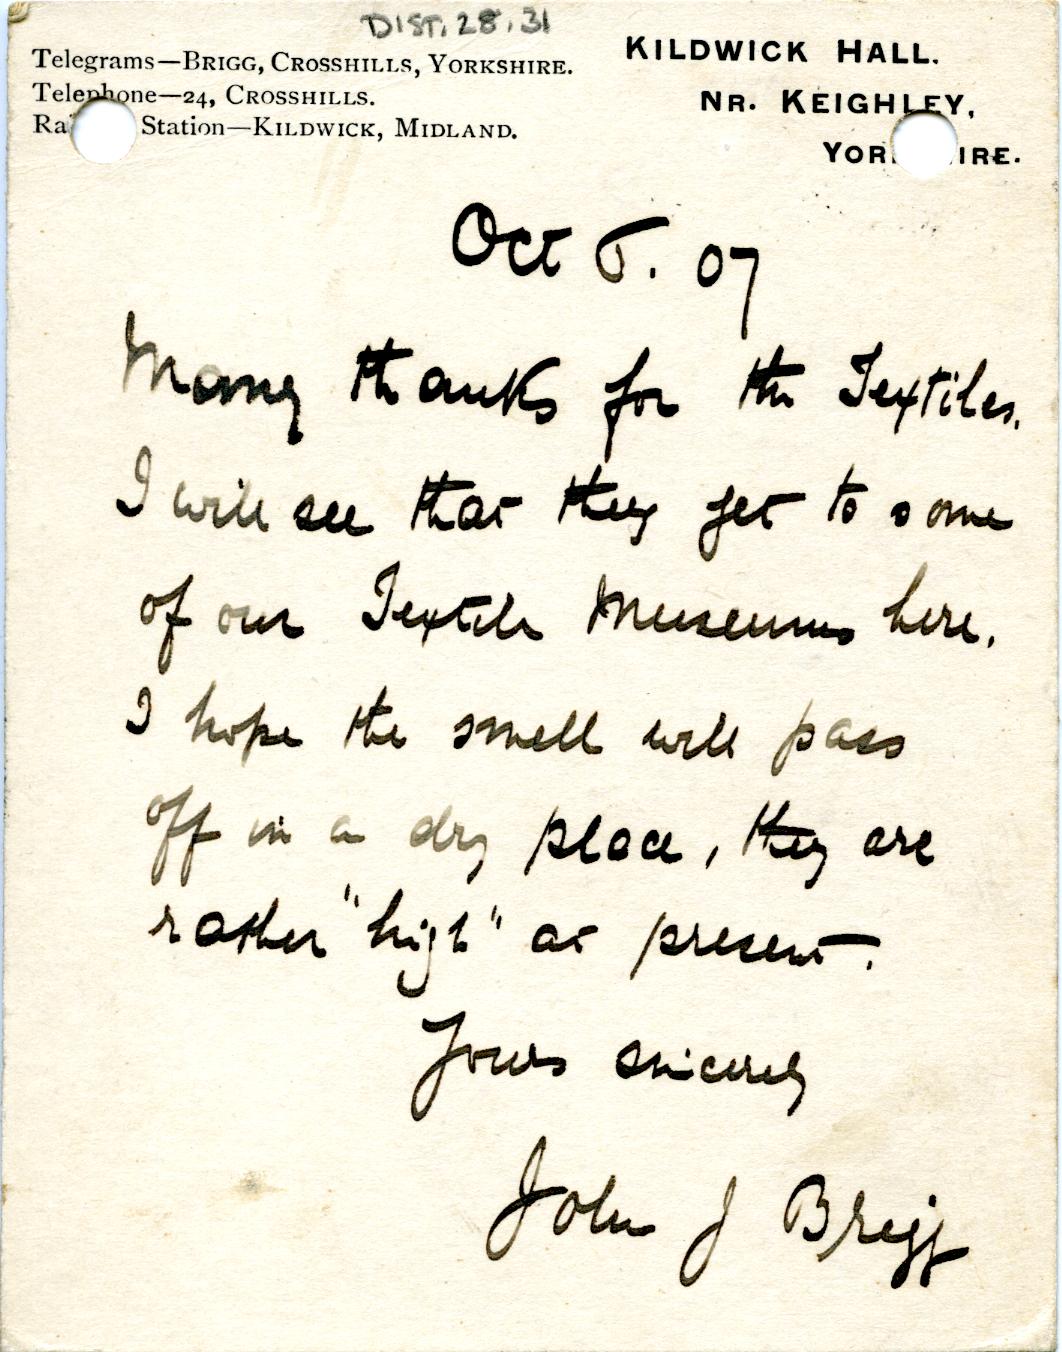 DIST. 28.31
Telegrams—BRIGG, CROSSHILLS, YORKSHIRE.
Telephone—24, CROSSHILLS.
Ra Station—KILDWICK, MIDLAND.
KILDWICK HALL.
NR. KEIGHLEY,
YOR IRE.
Oct 5. 07
Many thanks for the Textiles.
I will see that they get to some
of our Textile Museums here.
I hope the smell will pass
off in a dry place, they are
rather "high" at present.
Yours sincerely
John J Brigg